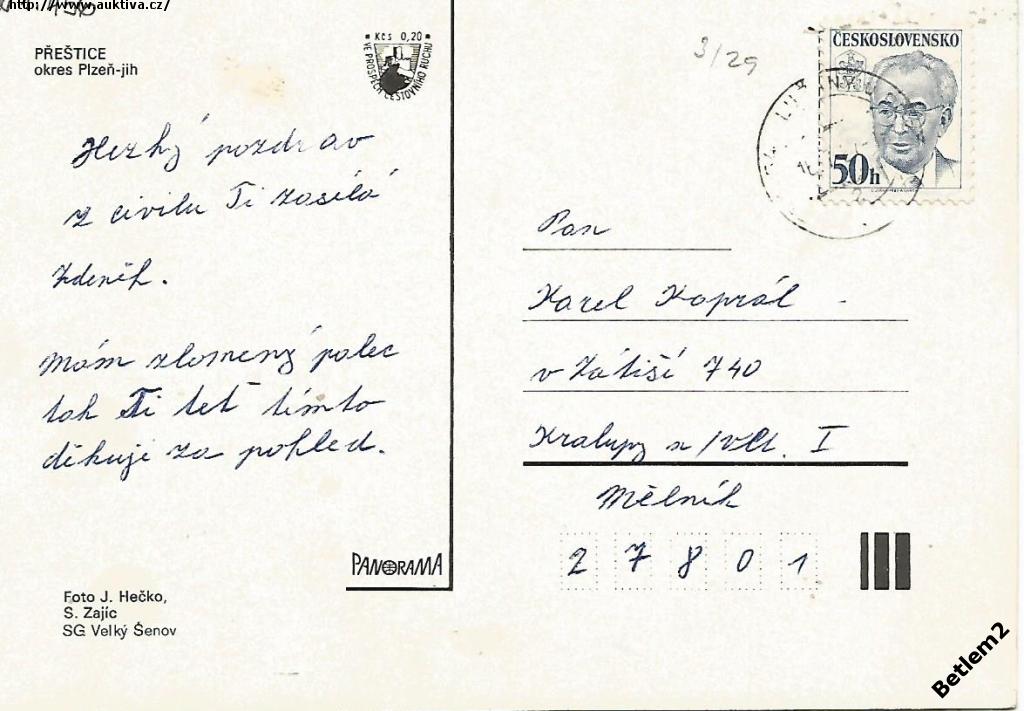 http://www.auktiva.cz/
PŘEŠTICE
okres Plzeň-jih
Kčs 0,20
VE PROSPĚCH CESTOVNÍHO RUCHU
3/29
ČESKOSLOVENSKO
50h
Hezký pozdrav
z civilu Ti zasílá
Zdeněk.
Mám zlomený palec
tak Ti teť tímto
děkuji za pohled.
Pan
Karel Kaprál
v Zátiší 740
Kralupy n/Vlt. I
Mělník
27801
PANORAMA
Foto J. Hečko,
S. Zajíc
SG Velký Šenov
Betlem2